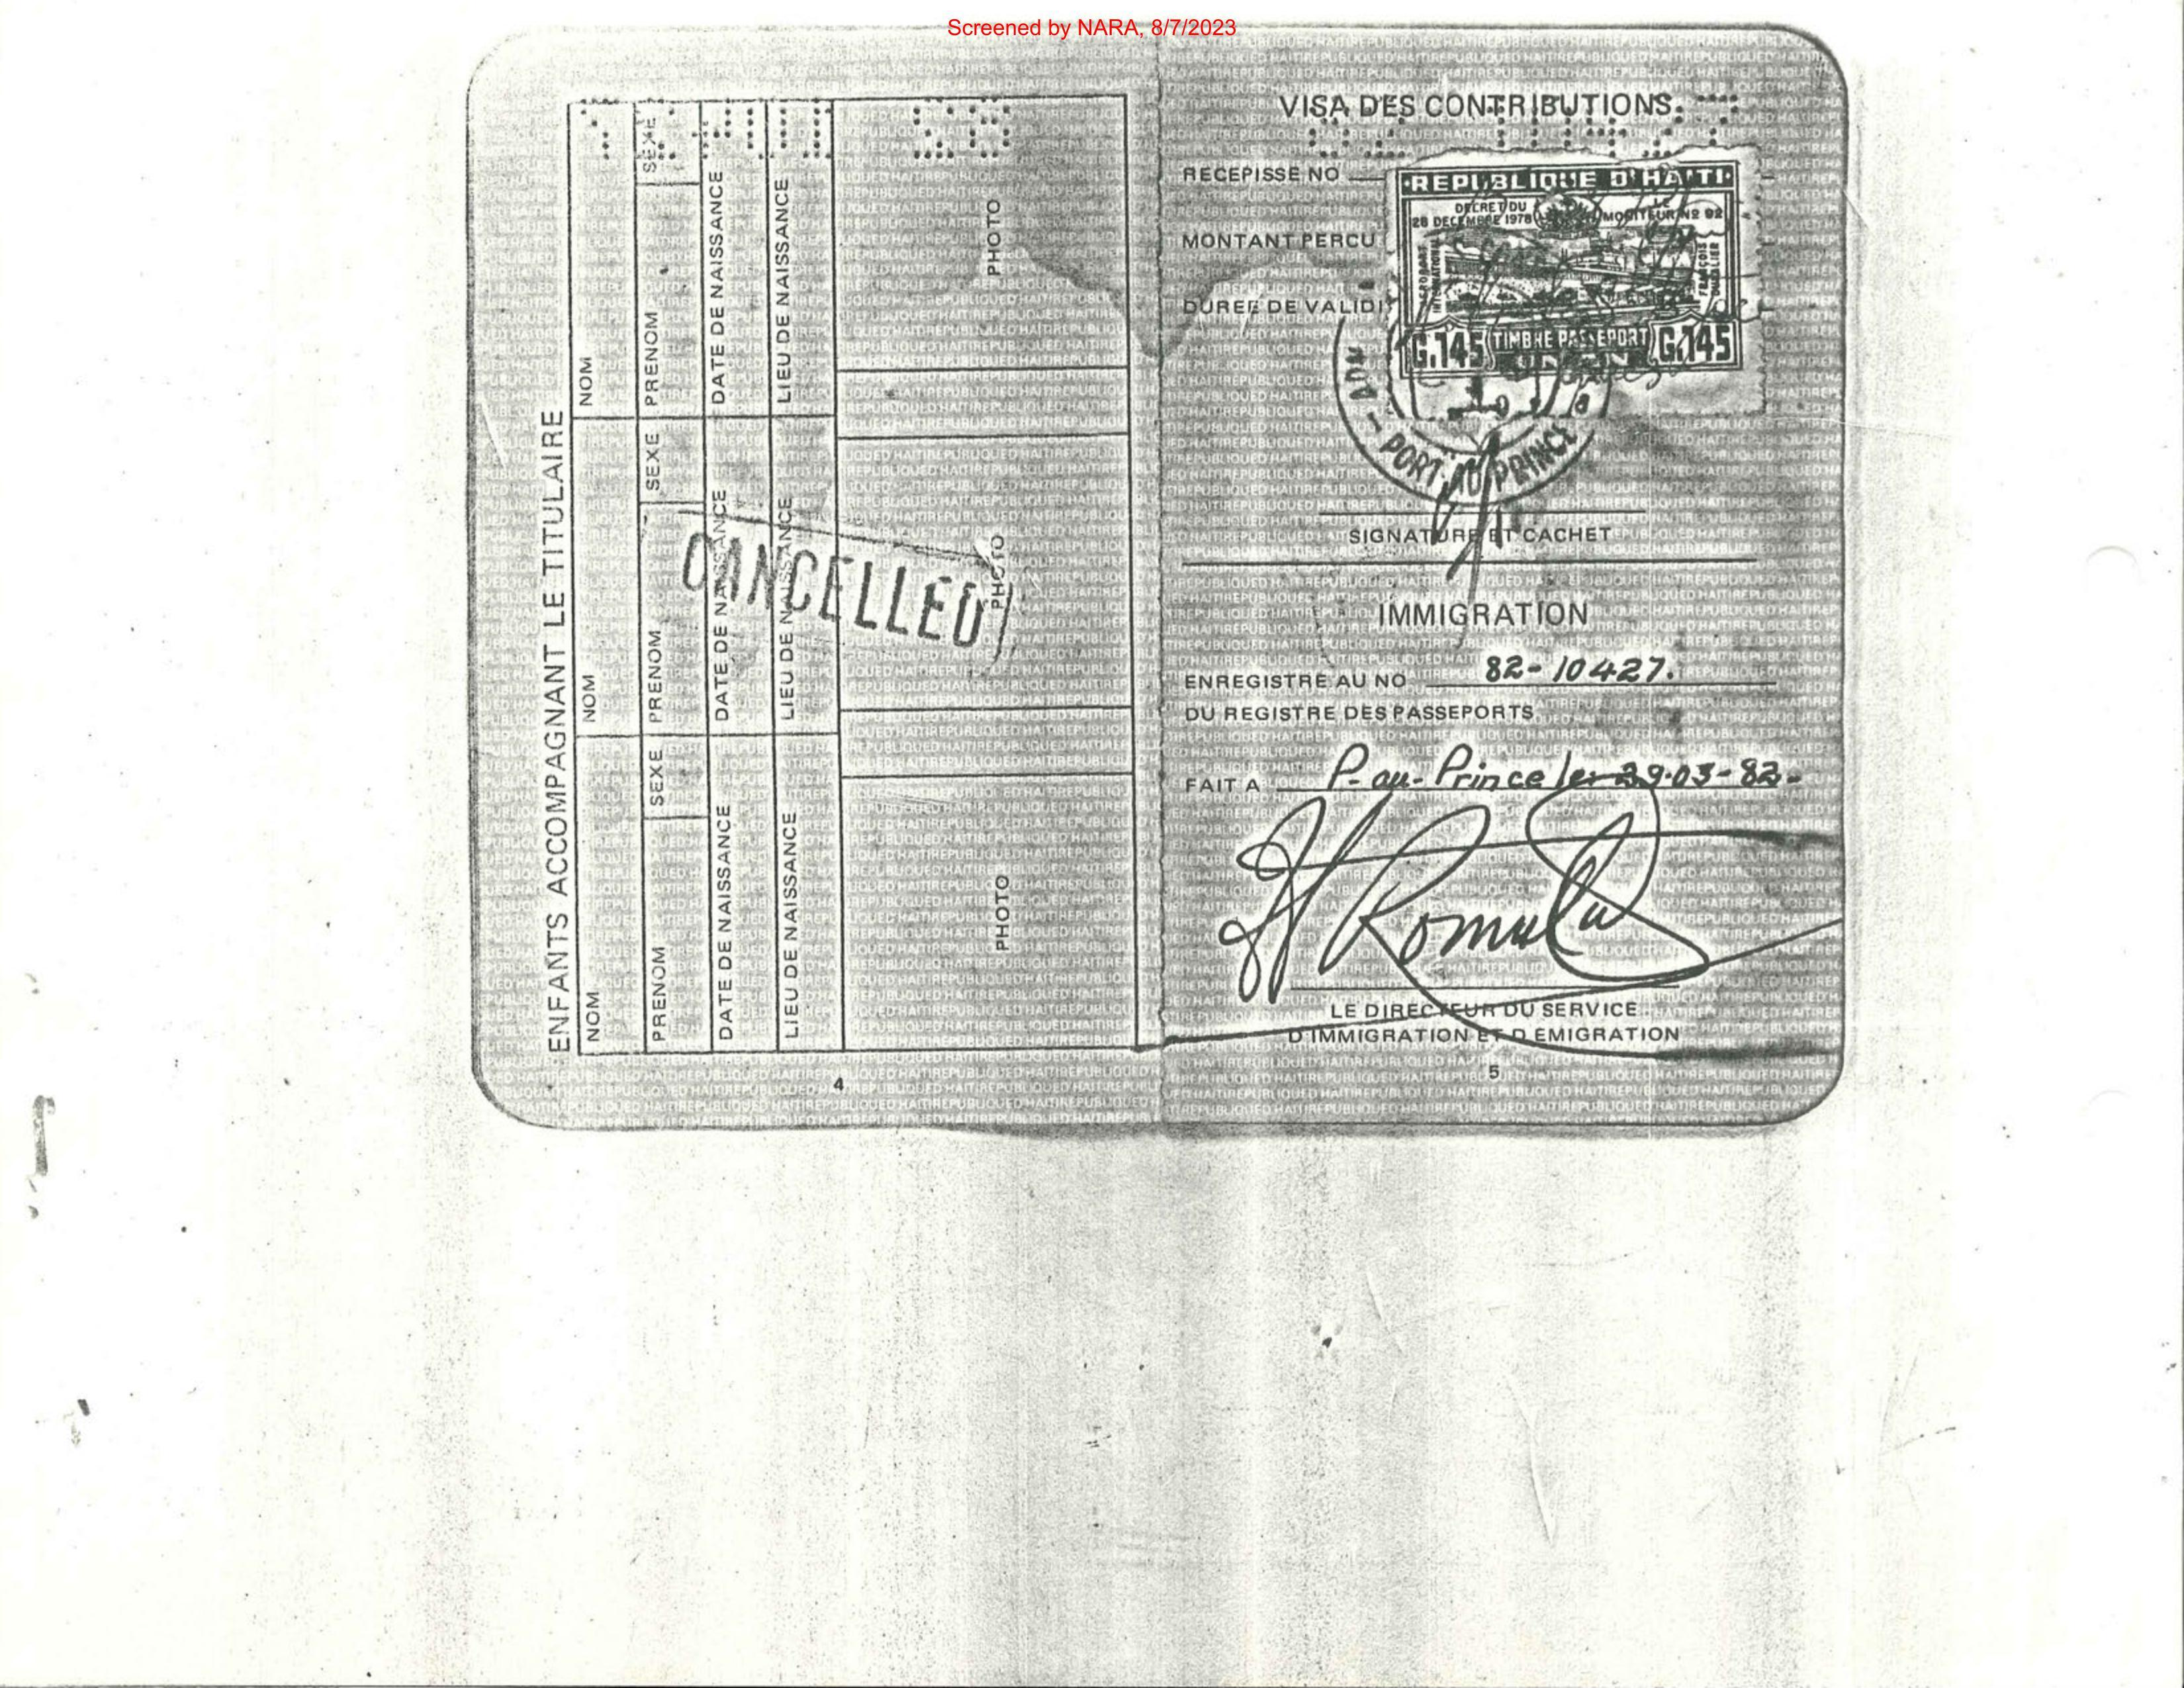 Screened by NARA, 8/7/2023
ENFANTS ACCOMPAGNANT LE TITULAIRE
NOM
PRENOM SEXE
DATE DE NAISSANCE
LIEU DE NAISSANCE
PHOTO
NOM
PRENOM SEXE
DATE DE NAISSANCE
LIEU DE NAISSANCE
PHOTO
NOM
PRENOM SEXE
DATE DE NAISSANCE
LIEU DE NAISSANCE
PHOTO
CANCELLED
4
VISA DES CONTRIBUTIONS
RECEPISSE NO
MONTANT PERCU
DUREE DE VALIDI
REPUBLIQUE D'HAITI
DECRET DU
28 DECEMBRE 1978
LE
MONITEUR No 92
AERODROME
INTERNATIONAL
FRANCOIS
DUVALIER
G.145 TIMBRE PASSEPORT G.145
UN AN
ADM — PORT-AU-PRINCE
SIGNATURE ET CACHET
IMMIGRATION
ENREGISTRE AU NO 82-10427.
DU REGISTRE DES PASSEPORTS
FAIT A P-au-Prince le: 29-03-82-
LE DIRECTEUR DU SERVICE
D'IMMIGRATION ET D EMIGRATION
5